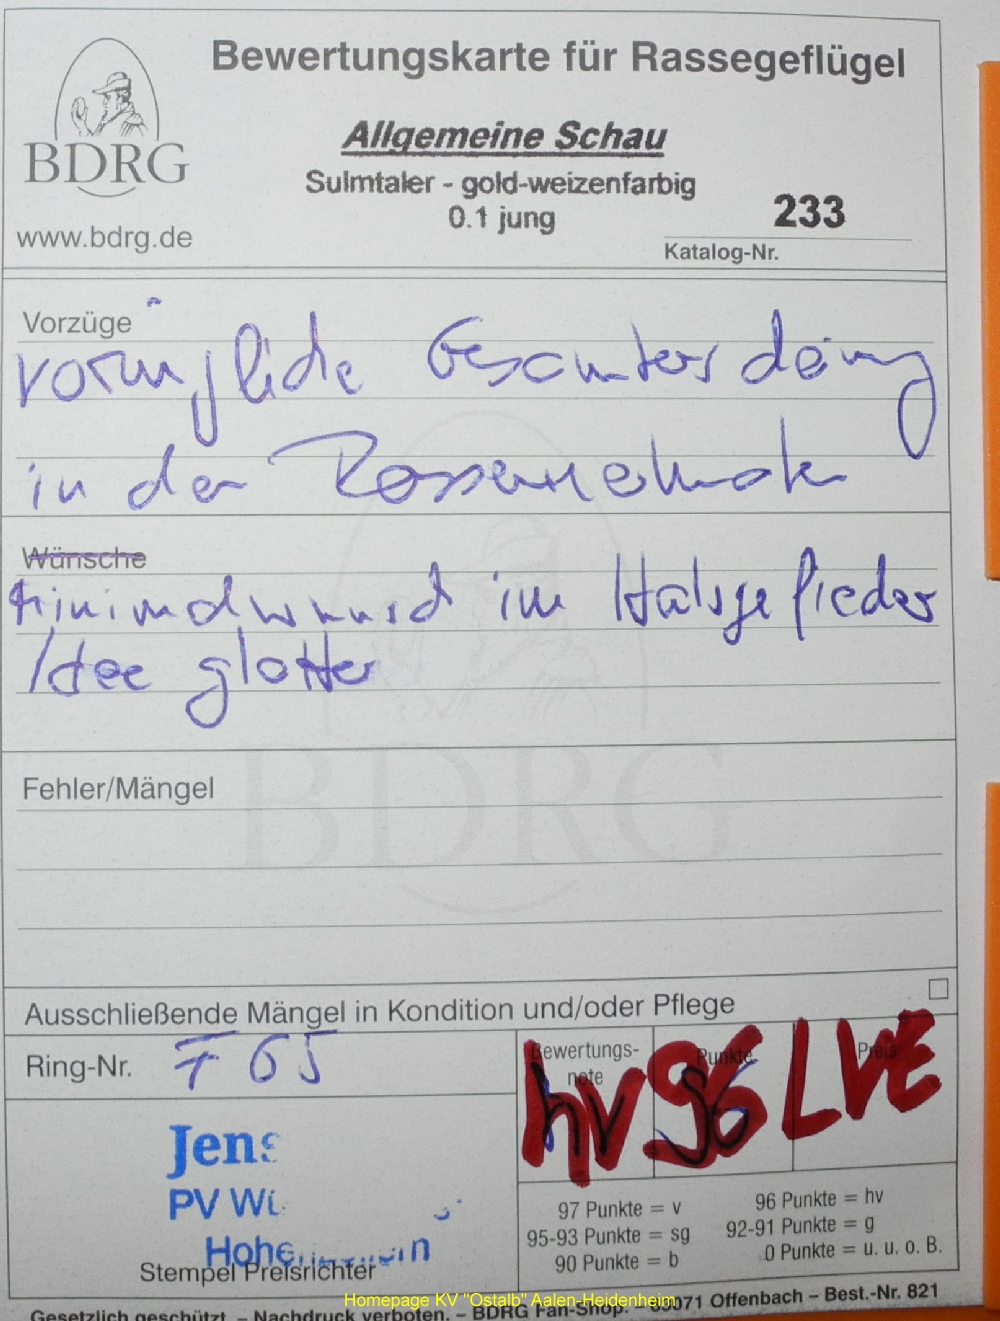 Bewertungskarte für Rassegeflügel
BDRG
www.bdrg.de
Allgemeine Schau
Sulmtaler - gold-weizenfarbig
0.1 jung
233
Katalog-Nr.
Vorzüge
vorzügliche
in der
Wünsche
Minimalwunsch im Halsgefieder
Idee glatter
BDRG
Fehler/Mängel
Ausschließende Mängel in Kondition und/oder Pflege
Ring-Nr. F 65
Bewertungs-note
Punkte
Preis
hv 96 LVE
Jens
PV Wi
Stempel Preisrichter
97 Punkte = v
96 Punkte = hv
95-93 Punkte = sg
92-91 Punkte = g
90 Punkte = b
0 Punkte = u. u. o. B.
Homepage KV "Ostalb" Aalen-Heidenheim
Gesetzlich geschützt – Nachdruck verboten. – BDRG Fan-Shop. 63071 Offenbach – Best.-Nr. 821